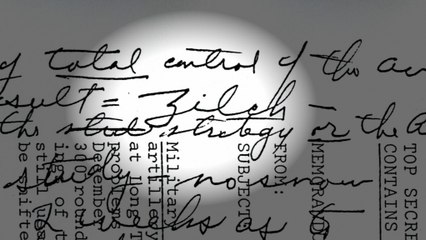 total control of the
sult = Zilch —
the strategy or the
study - no
weeks as
TOP SECRE
CONTAINS
MEMORAND
FROM:
SUBJECT
Military
artillery
at Hong T
problems
December
300 round
ing of t
be shifte